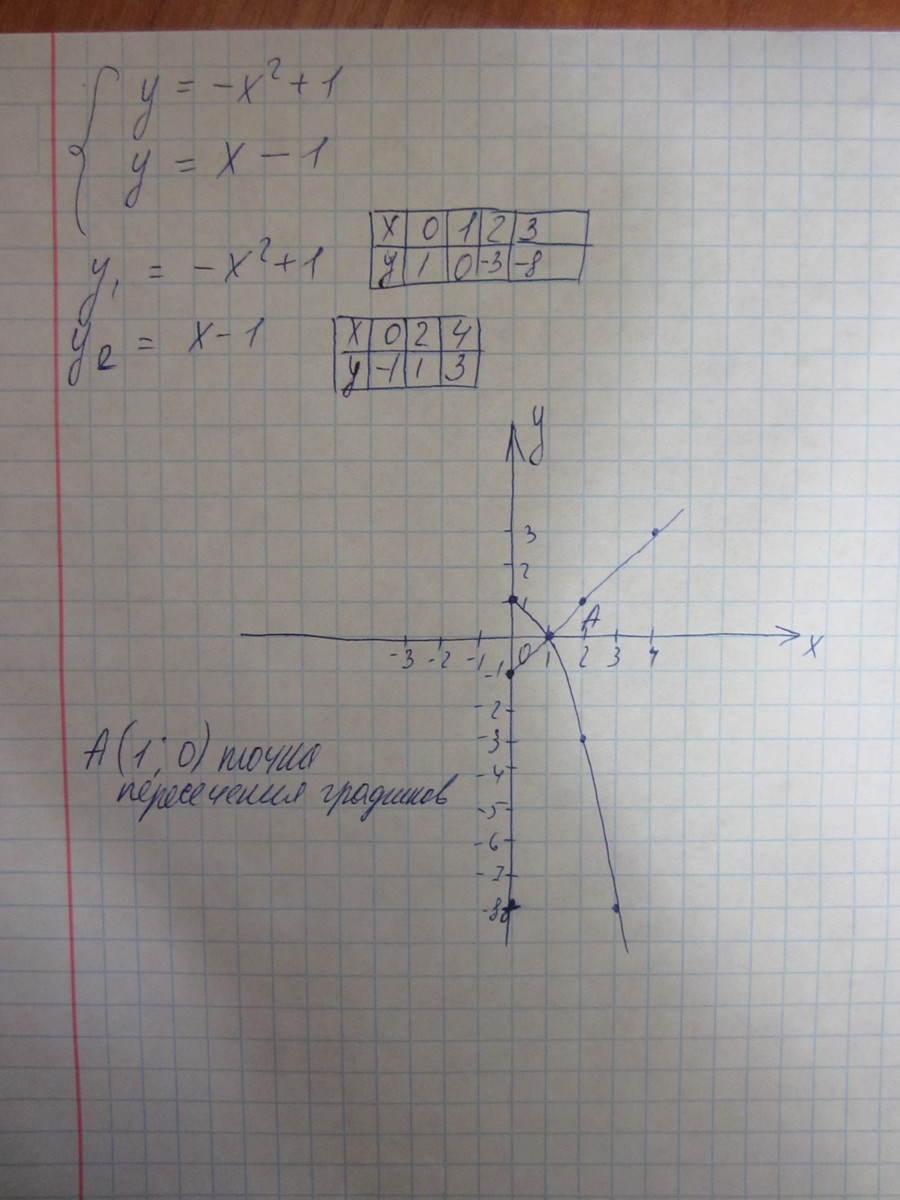 y = -x² + 1
y = x - 1
y₁ = -x² + 1
x 0 1 2 3
y 1 0 -3 -8
y₂ = x - 1
x 0 2 4
y -1 1 3
y
3
2
1
A
-3 -2 -1 0 1 2 3 4 x
-1
-2
-3
-4
-5
-6
-7
-8
A (1; 0) точка
пересечения графиков